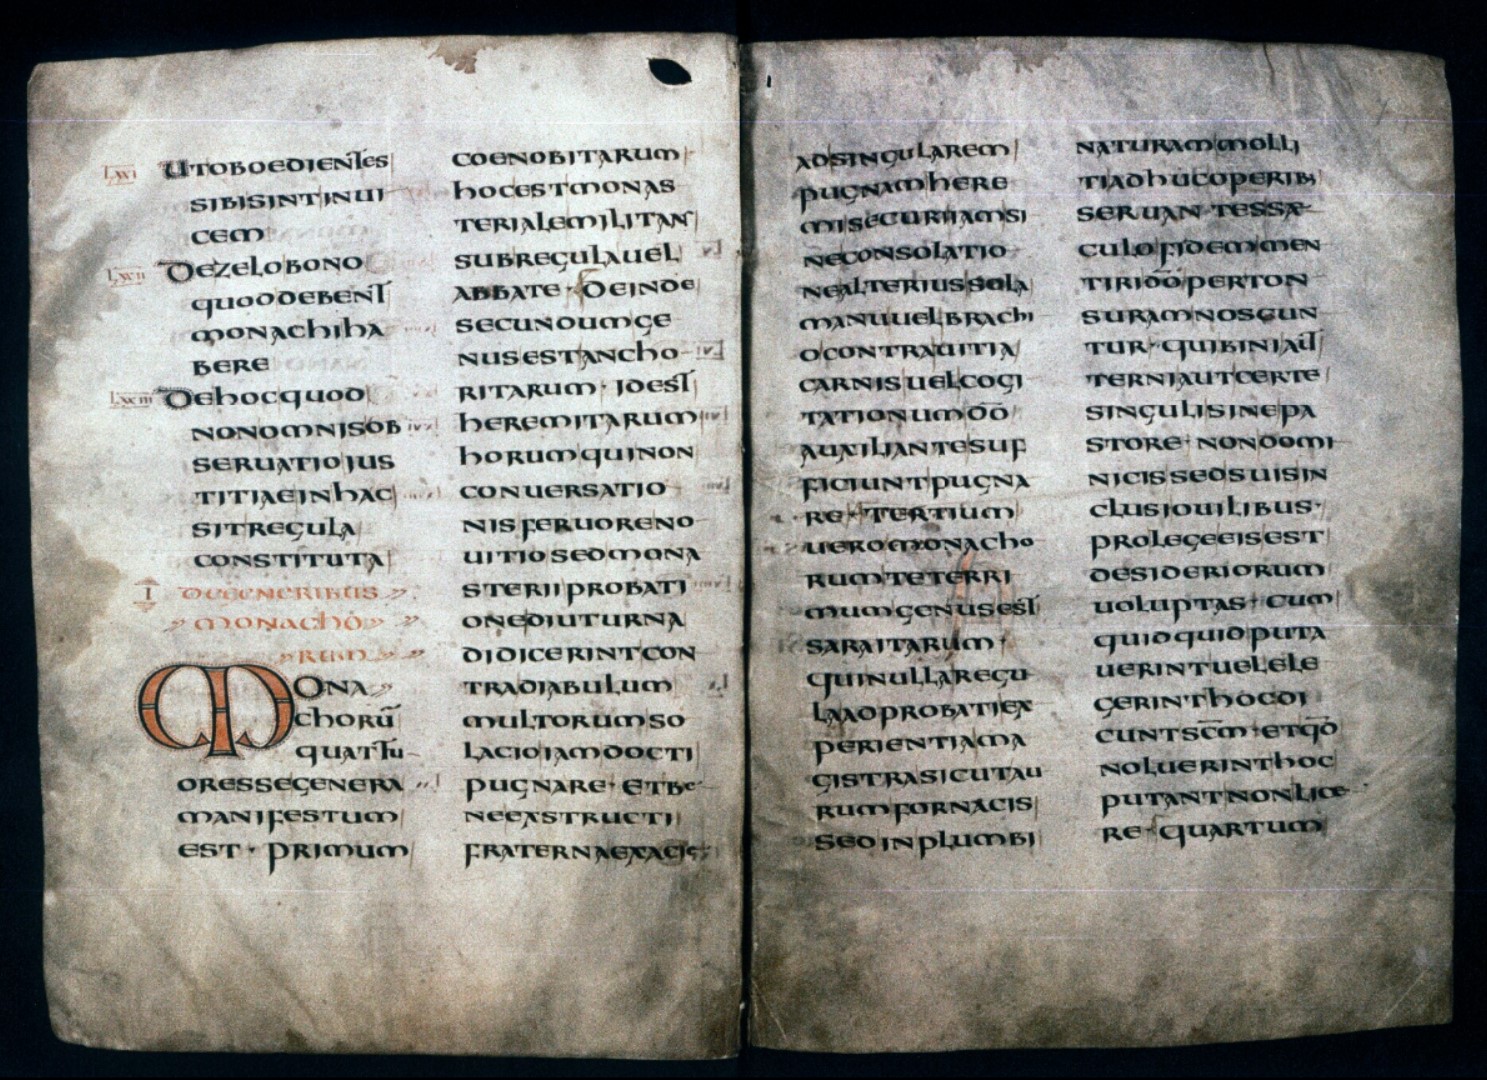 lxxi UTOBOEDIENTES
SIBISINTINUI
CEM
lxxii DEZELOBONO
QUODDEBENT
MONACHIHA
BERE
lxxiii DEHOCQUOD
NONOMNISOB
SERUATIOIUS
TITIAEINHAC
SITREGULA
CONSTITUTA
I DEGENERIBUS
MONACHO
RUM
MONA
CHORŪ
QUATTU
ORESSEGENERA
MANIFESTUM
EST · PRIMUM
COENOBITARUM
HOCESTMONAS
TERIALEMILITANS
SUBREGULAUEL
ABBATE · DEINDE
SECUNDUMGE
NUSESTANCHO
RITARUM · IDEST
HEREMITARUM
HORUMQUINON
CONUERSATIO
NISFERUORENO
UITIOSEDMONA
STERIIPROBATI
ONEDIUTURNA
DIDICERINTCON
TRADIABULUM
MULTORUMSO
LACIOIAMDOCTI
PUGNARE · ETBE
NEEXSTRUCTI
FRATERNAEXACIE
ADSINGULAREM
PUGNAMHERE
MISECURIIAMSI
NECONSOLATIO
NEALTERIUSSOLA
MANUUELBRACHI
OCONTRAUITIA
CARNISUELCOGI
TATIONUMDŌ
AUXILIANTESUF
FICIUNTPUGNA
RE · TERTIUM
UEROMONACHO
RUMTETERRI
MUMGENUSEST
SARAITARUM ·
QUINULLAREGU
LAXOPROBATIEX
PERIENTIAMA
GISTRASICUTAU
RUMFORNACIS
SEDINPLUMBI
NATURAMMOLLI
TIADHUCOPERIB;
SERUANTESSAE
CULOFIDEMMEN
TIRIDŌPERTON
SURAMNOSCUN
TUR · QUIBINIAUT
TERNIAUTCERTE
SINGULISINEPA
STORE · NONDOMI
NICISSEDSUISIN
CLUSIOUILIBUS ·
PROLEGEEISEST
DESIDERIORUM
UOLUPTAS · CUM
QUIDQUIDPUTA
UERINTUELELE
GERINTHOCDI
CUNTSC̄M · ETQD̄
NOLUERINTHOC
PUTANTNONLICE
RE · QUARTUM